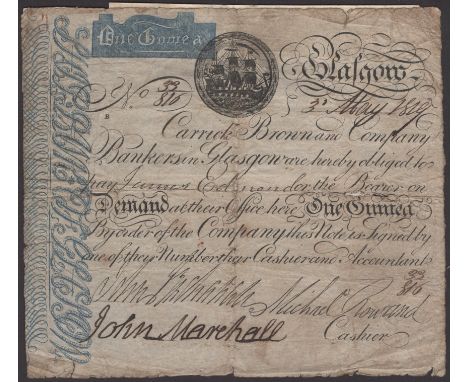 One Guinea
Glasgow
No. 33/310
3d. May 1802
B
Carrick Brown and Company
Bankers in Glasgow are hereby obliged to
pay James or the Bearer on
Demand at their Office here One Guinea
By order of the Company this Note is Signed by
one of their Number their Cashier and Accountant
33/310
John Michael Rowand
John Marshall Cashier